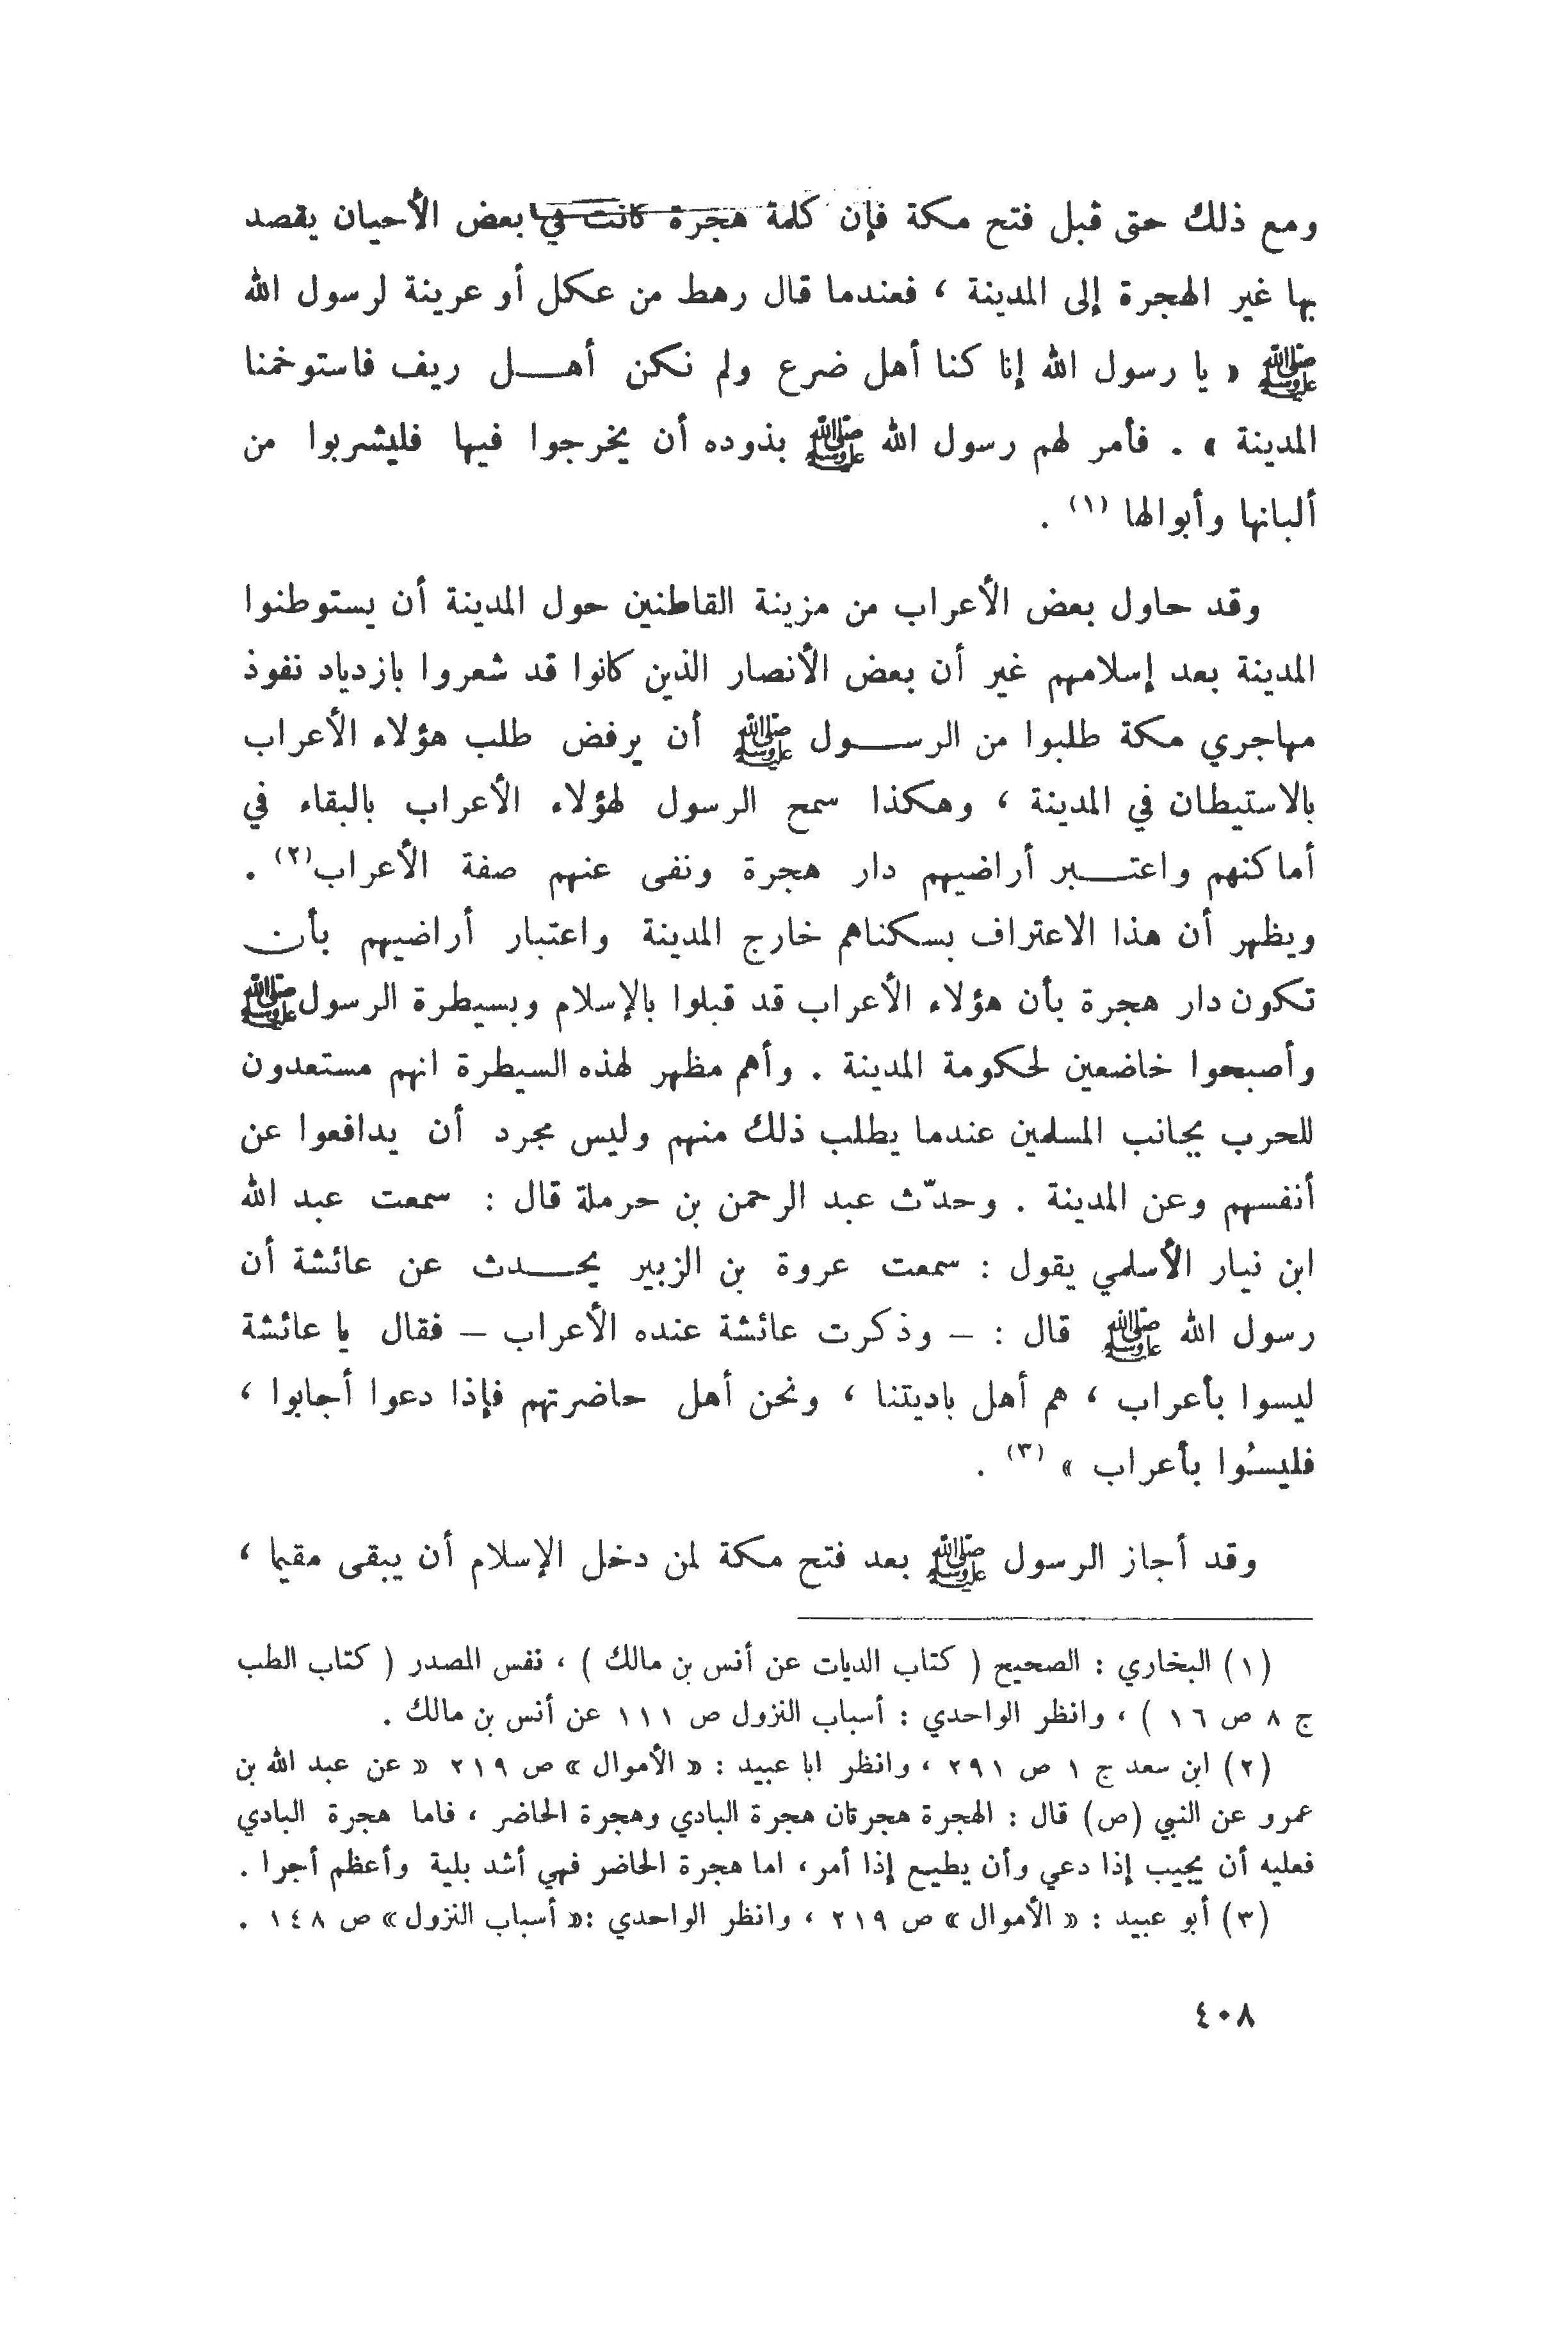 ومع ذلك حتى قبل فتح مكة فإن كلمة هجرة كانت في بعض الأحيان يقصد
بها غير الهجرة إلى المدينة ، فعندما قال رهط من عكل أو عرينة لرسول الله
ﷺ « يا رسول الله إنا كنا أهل ضرع ولم نكن أهل ريف فاستوخمنا
المدينة » . فأمر لهم رسول الله ﷺ بذوده أن يخرجوا فيها فليشربوا من
ألبانها وأبوالها (١) .
وقد حاول بعض الأعراب من مزينة القاطنين حول المدينة أن يستوطنوا
المدينة بعد إسلامهم غير أن بعض الأنصار الذين كانوا قد شعروا بازدياد نفوذ
مهاجري مكة طلبوا من الرسول ﷺ أن يرفض طلب هؤلاء الأعراب
بالاستيطان في المدينة ، وهكذا سمح الرسول لهؤلاء الأعراب بالبقاء في
أماكنهم واعتبر أراضيهم دار هجرة ونفى عنهم صفة الأعراب(٢) .
ويظهر أن هذا الاعتراف بسكناهم خارج المدينة واعتبار أراضيهم بأن
تكون دار هجرة بأن هؤلاء الأعراب قد قبلوا بالإسلام وبسيطرة الرسول ﷺ
وأصبحوا خاضعين لحكومة المدينة . وأهم مظهر لهذه السيطرة انهم مستعدون
للحرب بجانب المسلمين عندما يطلب ذلك منهم وليس مجرد أن يدافعوا عن
أنفسهم وعن المدينة . وحدّث عبد الرحمن بن حرملة قال : سمعت عبد الله
ابن نيار الأسلمي يقول : سمعت عروة بن الزبير يحدث عن عائشة أن
رسول الله ﷺ قال : – وذكرت عائشة عنده الأعراب – فقال يا عائشة
ليسوا بأعراب ، هم أهل باديتنا ، ونحن أهل حاضرتهم فإذا دعوا أجابوا ،
فليسُوا بأعراب » (٣) .
وقد أجاز الرسول ﷺ بعد فتح مكة لمن دخل الإسلام أن يبقى مقيما ،
(١) البخاري : الصحيح ( كتاب الديات عن أنس بن مالك ) ، نفس المصدر ( كتاب الطب
ج ٨ ص ١٦ ) ، وانظر الواحدي : أسباب النزول ص ١١١ عن أنس بن مالك .
(٢) ابن سعد ج ١ ص ٢٩١ ، وانظر ابا عبيد : « الأموال » ص ٢١٩ « عن عبد الله بن
عمرو عن النبي (ص) قال : الهجرة هجرتان هجرة البادي وهجرة الحاضر ، فاما هجرة البادي
فعليه أن يجيب إذا دعي وأن يطيع إذا أمر، اما هجرة الحاضر فهي أشد بلية وأعظم أجرا .
(٣) أبو عبيد : « الأموال » ص ٢١٩ ، وانظر الواحدي :« أسباب النزول» ص ١٤٨ .
٤٠٨